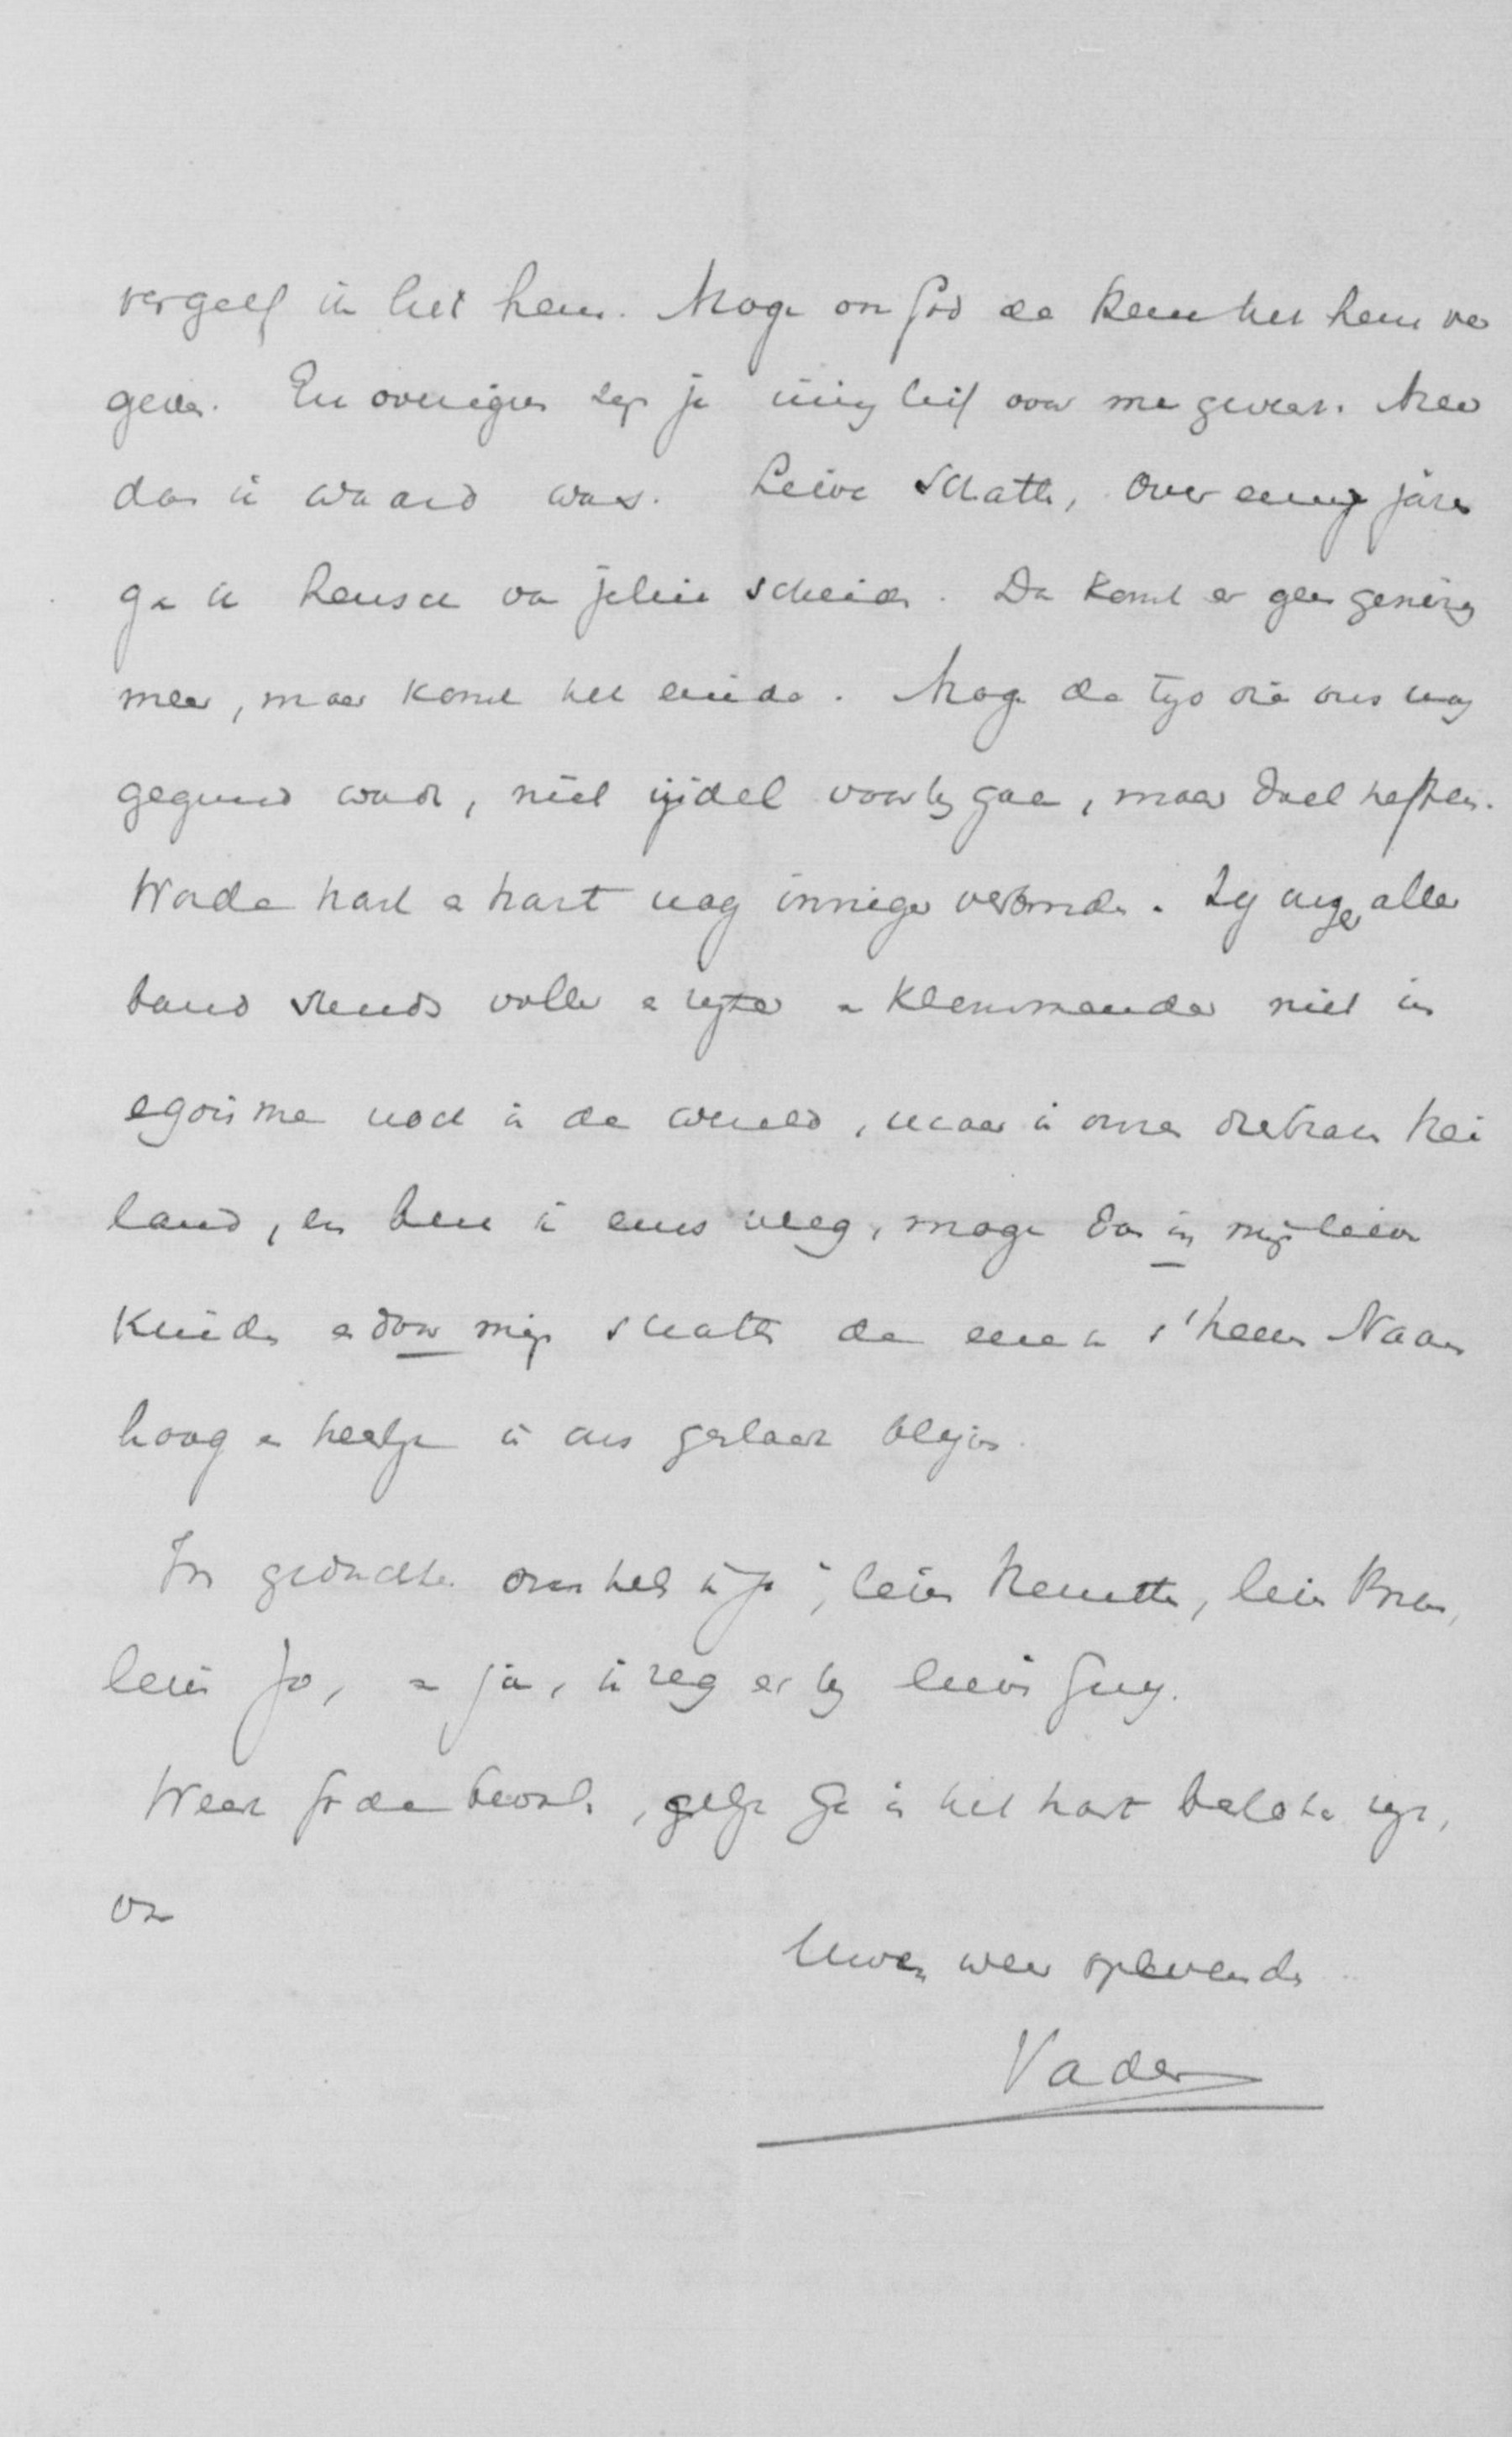 vergeef ik het hem. Moge onze God de Heer het hem ver
geven. En overigens zijt je innig lief voor me geweest. Meer
dan ik waard was. Lieve schatten, over eenige jaren
ga ik heusch van jelui scheiden. Dan komt er geen genezing
meer, maar komt het einde. Moge de tijd die ons nog
gegund wordt, niet ijdel voorbijgaan, maar doel treffen.
Worde hart en hart nog inniger verbonden. Zij onzer aller
band steeds voller en rijker en klemmender niet in
egoisme noch in de wereld, maar in onzen dierbaren Hei
land, en ben ik eens weg, moge dan in mijn lieve
kinderen en door mijn schatten de eere van s'heeren Naam
hoog en heerlijk in ons geslacht blijven.
In gedachten omhels ik je, lieve Henriette, lieve Bram,
lieve Jo, en ja, ik zeg er bij lieve Guy.
Weest Gode bevolen, gelijk ge in het hart besloten zijt,
van
Uwen weer oplevenden
Vader